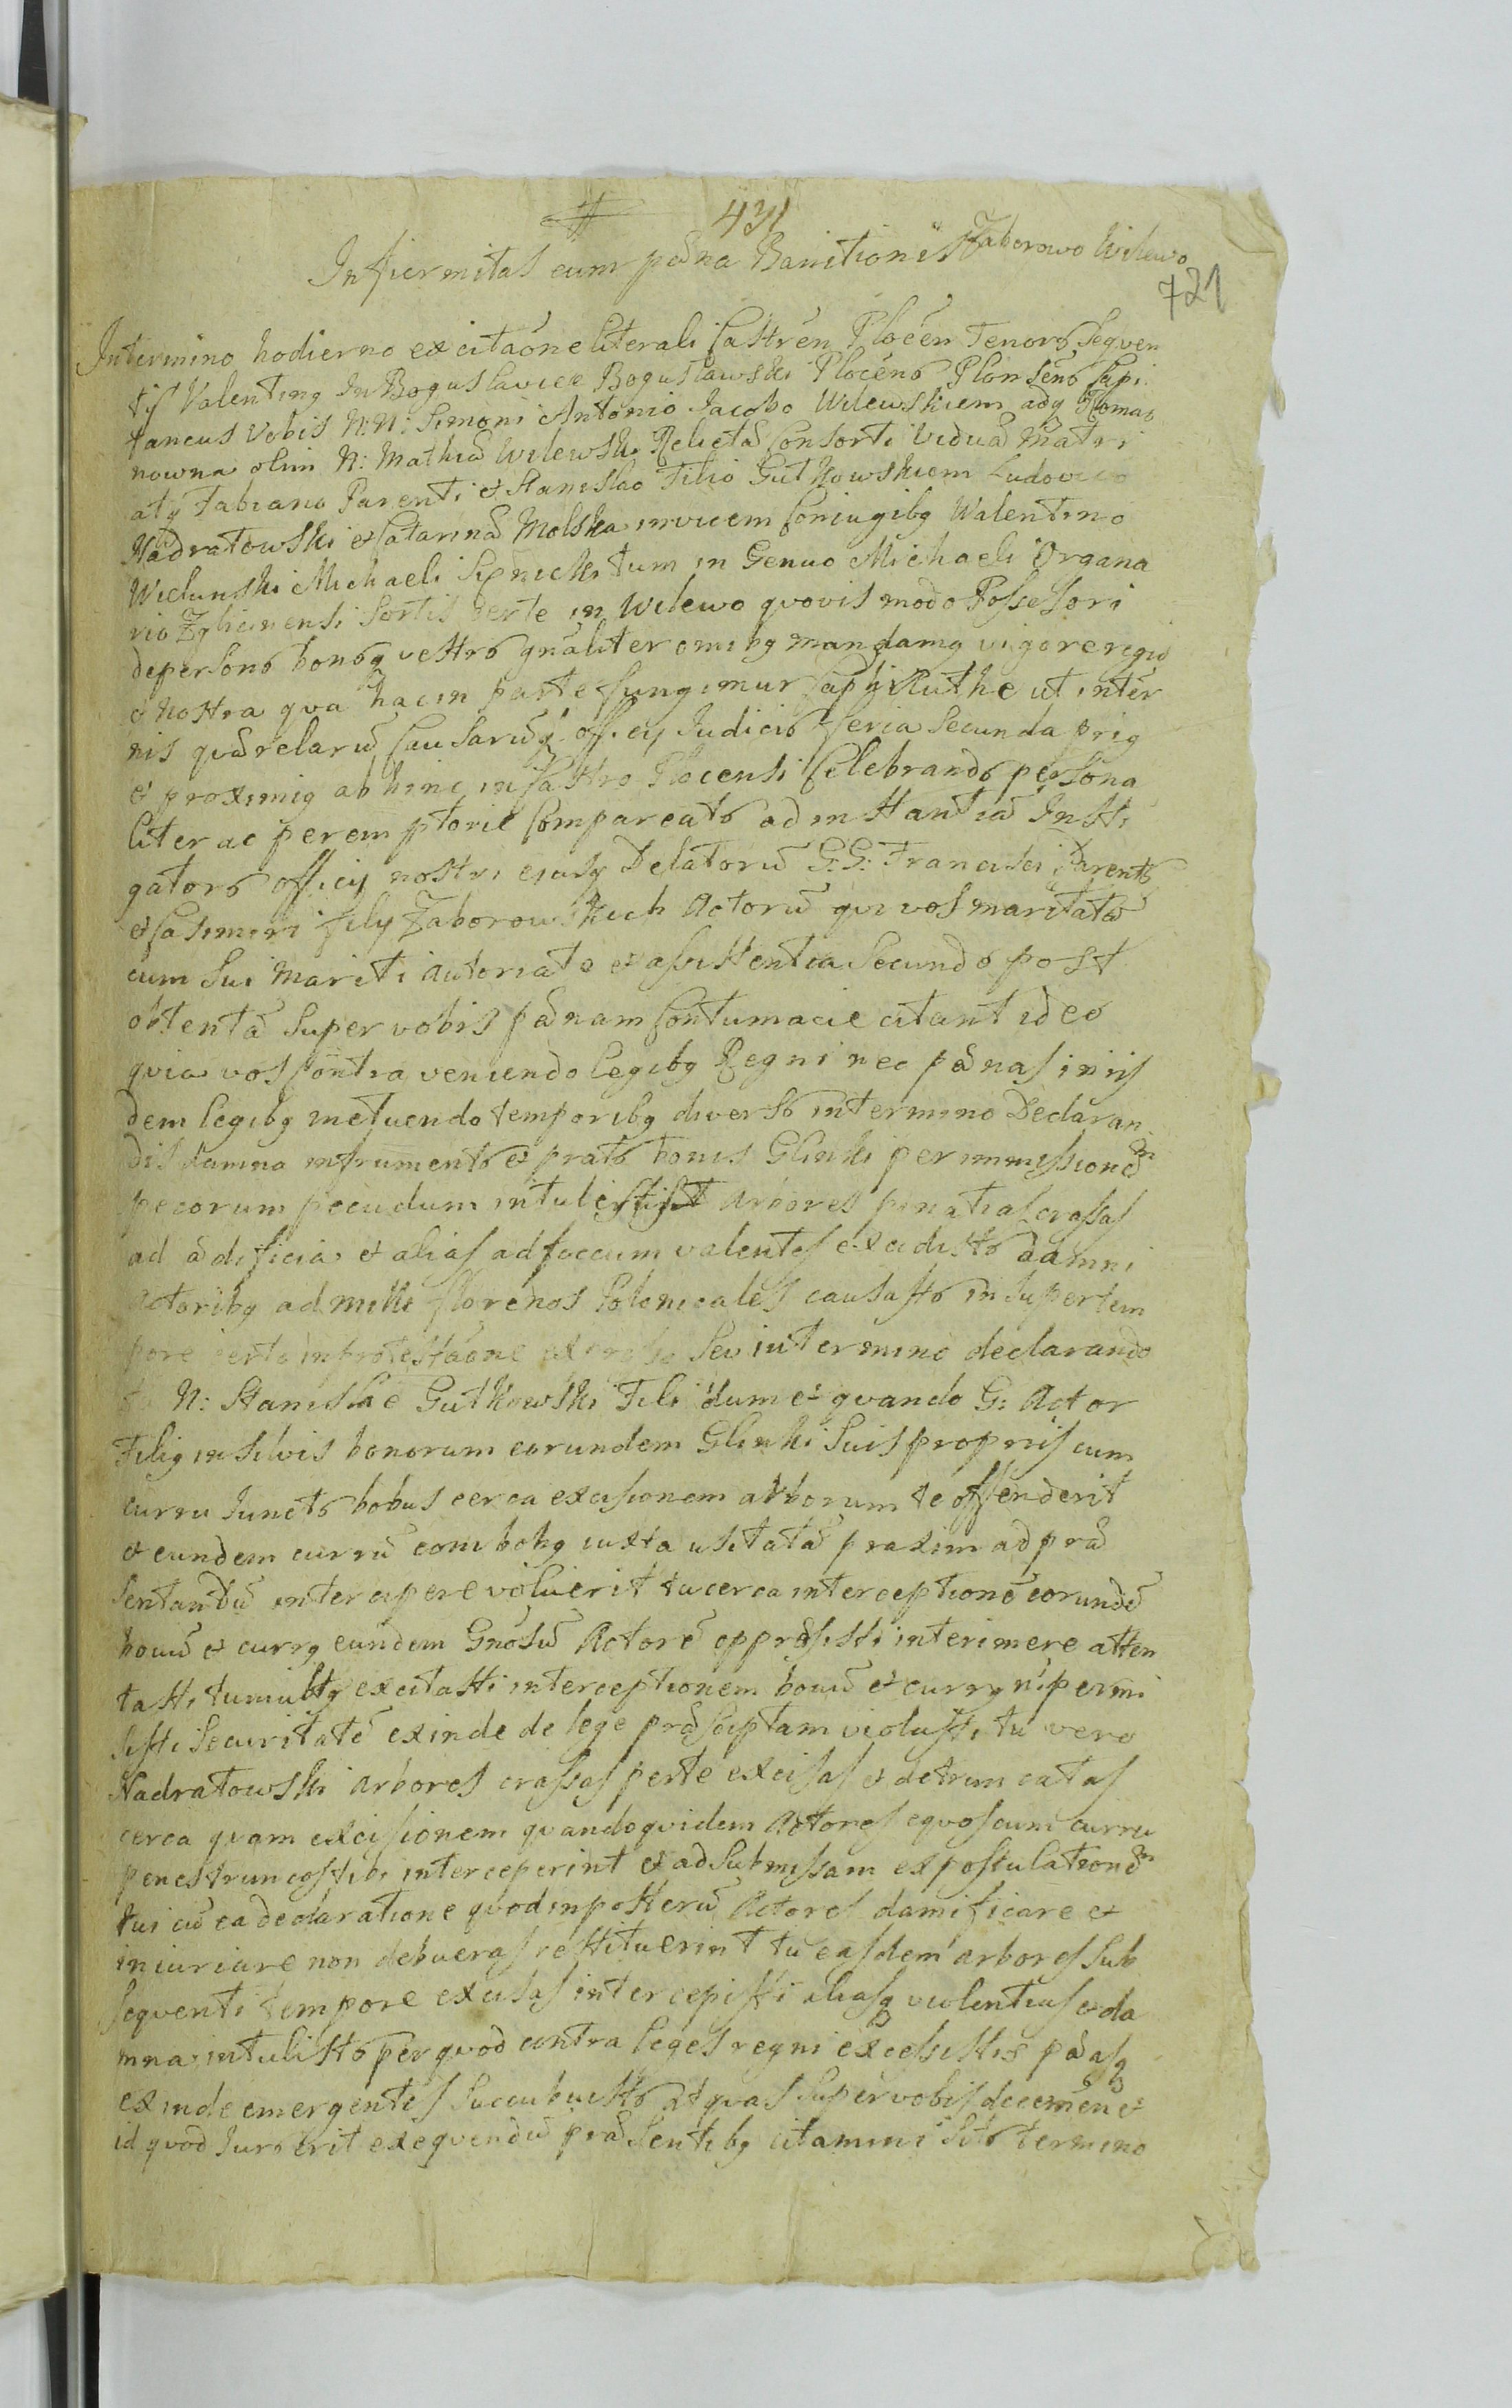 431
Infiermitas cum pæna Banitionis Zaborowo Wilewo
721
In termino hodierno ex citaõne literali Castrẽn Plocẽn Tenoris Sequen
tis Valentinq In Bogusławice Bogusławski Plocẽns Plonsẽns Capi
taneus Vobis N: N: Simoni Antonio Jacobo Wilewskiem adq Thomas
nowna olim N: Mathiæ Wilewski Relictæ Consorti Viduæ Matri
atq Fabiano Parenti et Stanislao Filio Gutkowskiem Ludovico
Nadratowski et Catarinæ Molska invicem Coniugibq Walentino
Wielunski Michaeli tum in Genuo Michaeli Organa
rio Zglicinensi Sortis certe in Wilewo quovis modo Possessori
de persons bonisq vestris gnãliter omibq mandamq vigore regio
et nostra qua hac in parte fungimur ut inter
nis quærelarũ Causarũq officij Judicis feria Secunda
et proximiq ab hinc in Castro Plocensi Celebrandis persona
liter ac peremptorie Compareatis ad instantiã Insti
gatoris officij nostri eiusq Delatorũ G: G: Francisci Parentis
et Casimiri filij Zaborowskich Actorũ qui vos maritatas
cum Sui Mariti autoriate et assistentia Secundo post
obtentã super vobis pænam Contumacie citant ideo
quia vos Contra veniendo legibq Regni nec pænas in iis
dem legibq metuendo temporibq diversis in termino Declaran
dis damna in frumentis et pratis bonis Glinki per immissionẽm
pecorum pecudum intulistist arbores crassas
ad ædificia et alias ad foccum valentes excidistis damni
Actoribq ad mille florenos Polonicales causastis in super tem
pore certo in protestaõne expresso Seu in termino declarando
tu N: Stanislae Gutkowski Fili dum et quando G: Actor
Filiq in silvis bonorum eorundem Glinki Suis proprijs cum
curru Juncto bobus cerca excisionem arborum te offenderit
et eundem currũ com bobq iuxta usitatã praxim ad præ
sentandũ intercipere voluerit tu cerca interceptionẽ eorundẽ
bouũ et currq eundem Gnõsũ Actorẽ oppræsisti interimere atten
tasti tumultq excitasti interceptionem bouũ et currq nĩ permi
sisti Securitatẽ exinde de lege præsciptam violasti tu vero
Nadratowski arbores crassas perte excisas et detruncatas
cerca quam excisionem quandoquidem Actores equos cum curru
penes truncos tibi interceperint et ad Submissam expostulationẽm
tui cũ ea declaratione quod in posterũ Actores damificare et
iniuriare non debueras restituerint tu easdem arbores Sub
sequenti tempore excisas intercepisti aliasq violentias et da
mna intulistis per quod contra leges regni excessistis pæasq
exinde emergentes Succubuistis ad quas Super vobis decernẽn et
id quod Juris erit exequendũ præsentibq citamini Sitis termino